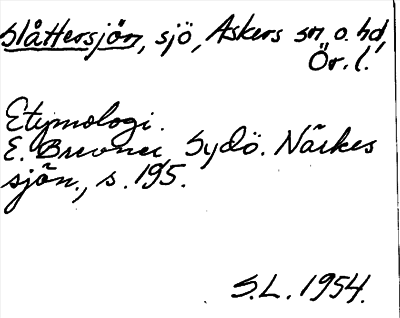 Slåttersjön, sjö, Askers sn o. hd,
Ör. l.
Etymologi.
E. Brevner Sydö. Närkes
sjön., s. 195.
S.L. 1954.